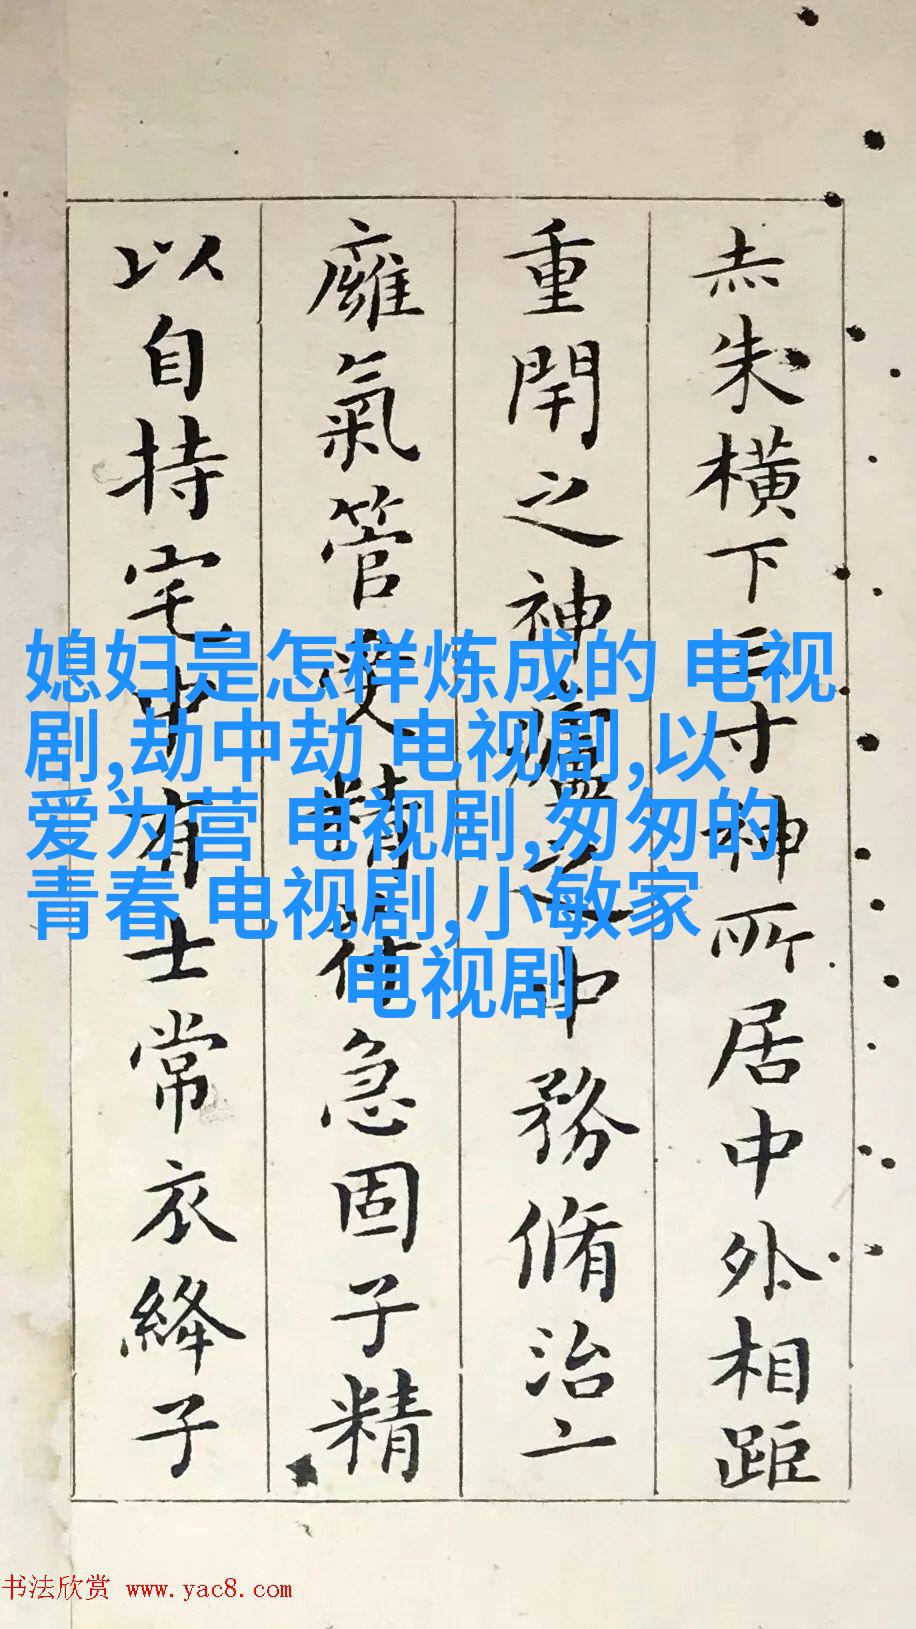 赤朱橫下三寸神所居中外相距
重閉之神廬之中務脩治
廱氣管受精符急固子精
以自持宅中有士常衣絳子
媳妇是怎样炼成的 电视
剧,劫中劫 电视剧,以
爱为营 电视剧,匆匆的
青春 电视剧,小敏家
电视剧
书法欣赏 www.yac8.com